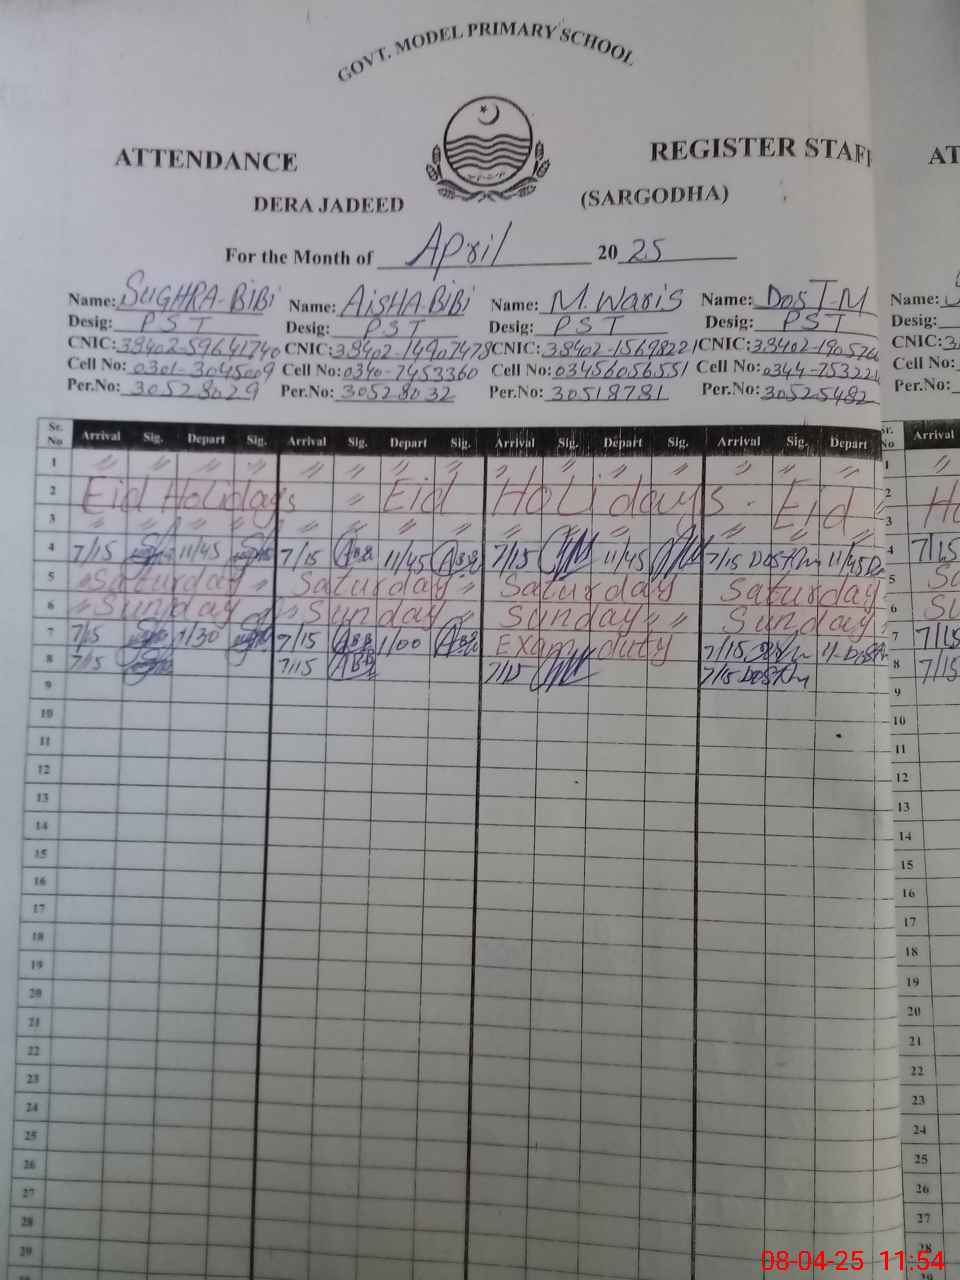 GOVT. MODEL PRIMARY SCHOOL
ATTENDANCE REGISTER STAFF AT
DERA JADEED (SARGODHA)
For the Month of April 2025
Name: SUGHRA-BiBi Name: AiSHA.BiBi Name: M. Waris Name: DosT-M Name:
Desig: PST Desig: PST Desig: PST Desig: PST Desig:
CNIC: 38402-59641740 CNIC: 38402-14907478 CNIC: 38402-15698221 CNIC: 38402-190576 CNIC: 3
Cell No: 0301-3045009 Cell No: 0340-7453360 Cell No: 03456056551 Cell No: 0344-753221 Cell No:
Per.No: 30528029 Per.No: 30528032 Per.No: 30518781 Per.No: 30525482 Per.No:
Sr. No Arrival Sig. Depart Sig. Arrival Sig. Depart Sig. Arrival Sig. Depart Sig. Arrival Sig. Depart Sr. No Arrival
1 " " " " " " " " " " " " " " " 1 "
2 Eid Holidays " Eid Holidays. Eid 2 Ho
3 " " " " " " " " " " 3
4 7/15 11/45 7/15 11/45 7/15 11/45 7/15 DosTM 11/45 4 7/15
5 "Saturday" Saturday" Saturday Saturday 5 Sa
6 "Sunday" "Sunday Sunday" " Sunday 6 Su
7 7/15 1/30 7/15 1/00 Exam duty 7/15 7 7/15
8 7/15 7/15 7/15 7/15 DosTM 8 7/15
9 9
10 10
11 11
12 12
13 13
14 14
15 15
16 16
17 17
18 18
19 19
20 20
21 21
22 22
23 23
24 24
25 25
26 26
27 27
28 28
29
08-04-25 11:54